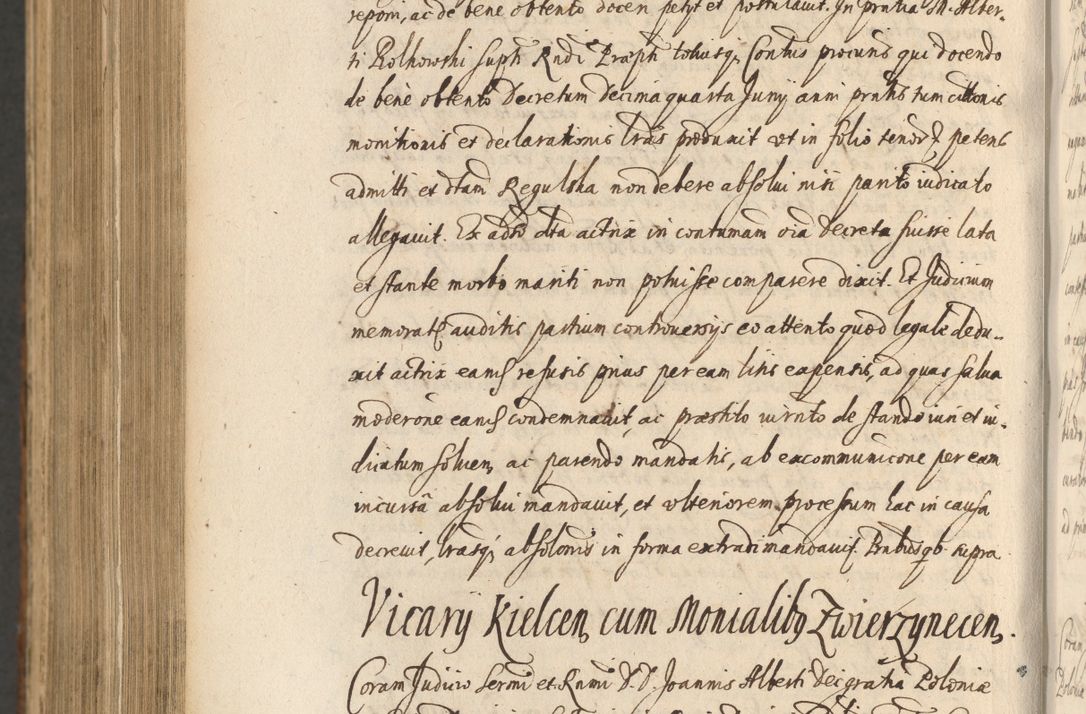 reponi, ac de bene obtento docen petyt et postulauit. In prntia M. Alber-
ti Rolkowski suph Rndi Præph totiusq; Contus procuris qui docendo
de bene obtento Decretum decima quarta Juny anni prntis tum cittonis
monitionis et declarationis lras produxit et in folio tenor petens
admitti et dtam Regulska non debere absolui nisi parito iudicato
allegauit. Ex adso dta actrix in contumam oia decreta fuisse lata
et stante morbo mariti non potuisse comparere dixit. Et Judicium
memorat auditis partium controuersys eo attento quod legale dedu-
xit actrix eams refusis prius per eam litis expensis, ad quas salua
moderone eams condemnauit, ac præstito iurnto de stando iuri et iu-
dicatum soluen, ac parendo mandatis, ab excommunicone per eam
incursa absolui mandauit, et vlteriorem processum hac in causa
decreuit, lrasq; absolonis in forma extradi mandauit. Pntibus qb supra
Vicary Kielcen, cum Monialibq Zwierzynecen,.
Coram Judicio Sermi et Rnmi D. D. Joannis Alberti Dei gratia Poloniæ